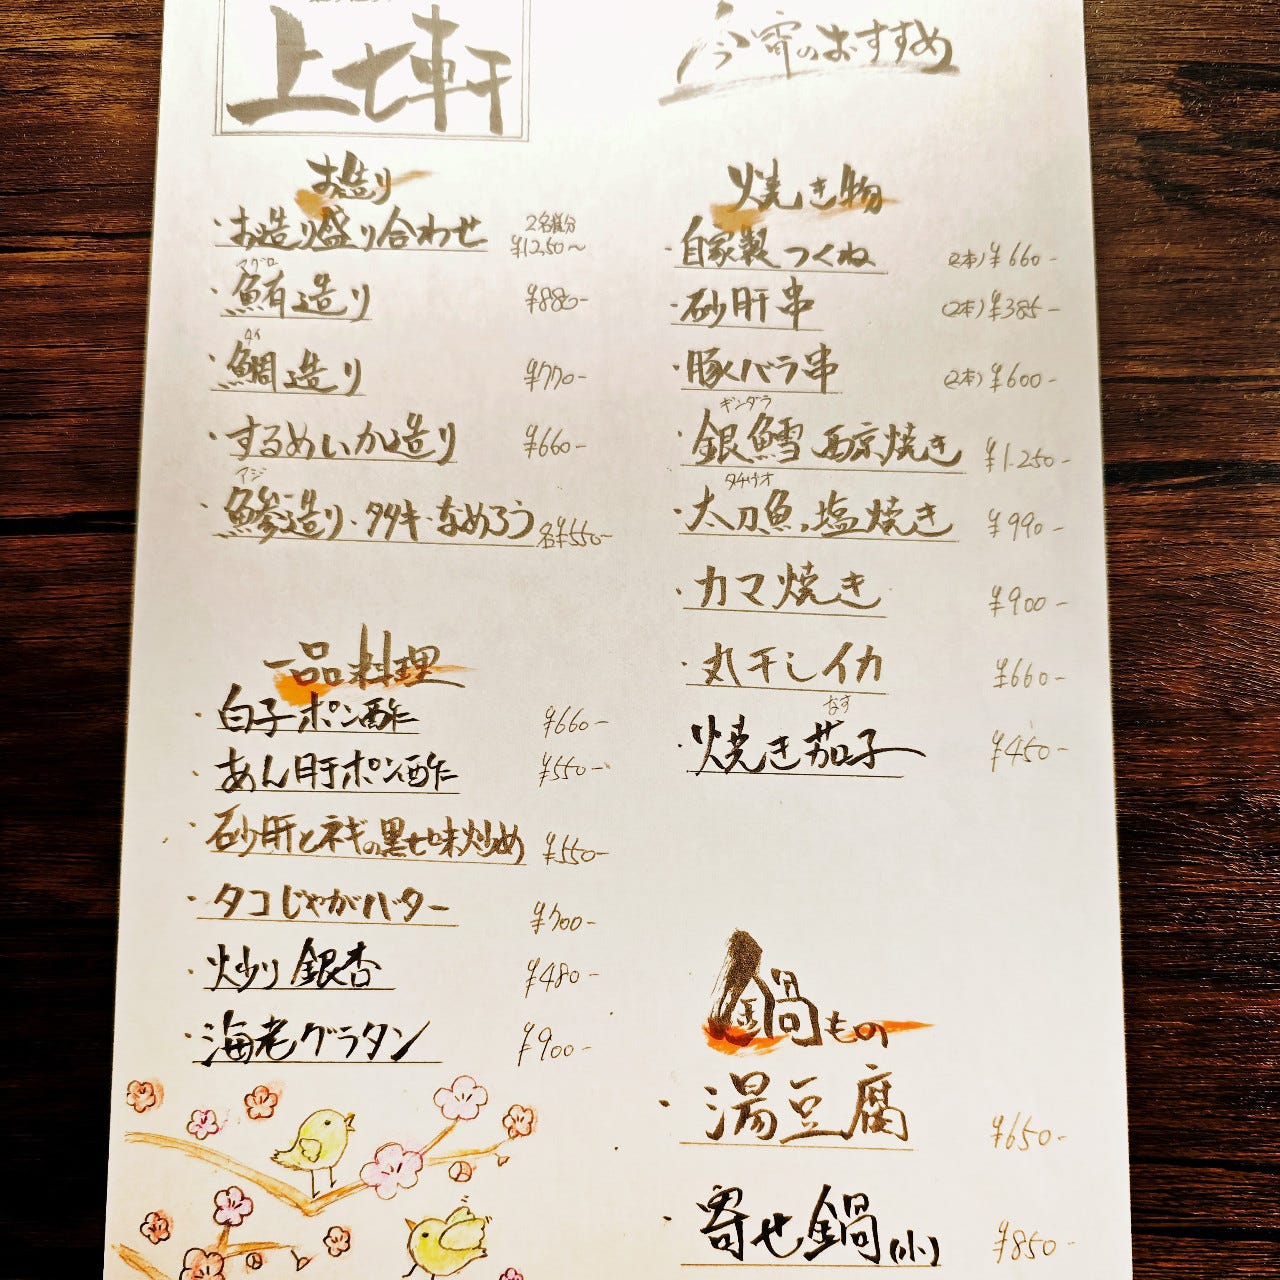 上七軒
今宵のおすすめ
お造り
・お造り盛り合わせ 2名様分 ¥1,250~
マグロ
・鮪造り ¥880-
タイ
・鯛造り ¥770-
・するめいか造り ¥660-
アジ
・鯵造り・タタキ・なめろう 各¥550-
一品料理
・白子ポン酢 ¥660-
・あん肝ポン酢 ¥550-
・砂肝とネギの黒七味炒め ¥550-
・タコじゃがバター ¥700-
・炒り銀杏 ¥480-
・海老グラタン ¥900-
焼き物
・自家製つくね (2本)¥660-
・砂肝串 (2本)¥385-
・豚バラ串 (2本)¥600-
ギンダラ
・銀鱈西京焼き ¥1.250-
タチウオ
・太刀魚の塩焼き ¥990-
・カマ焼き ¥900-
・丸干しイカ ¥660-
なす
・焼き茄子 ¥450-
鍋もの
・湯豆腐 ¥650-
・寄せ鍋(小) ¥850-